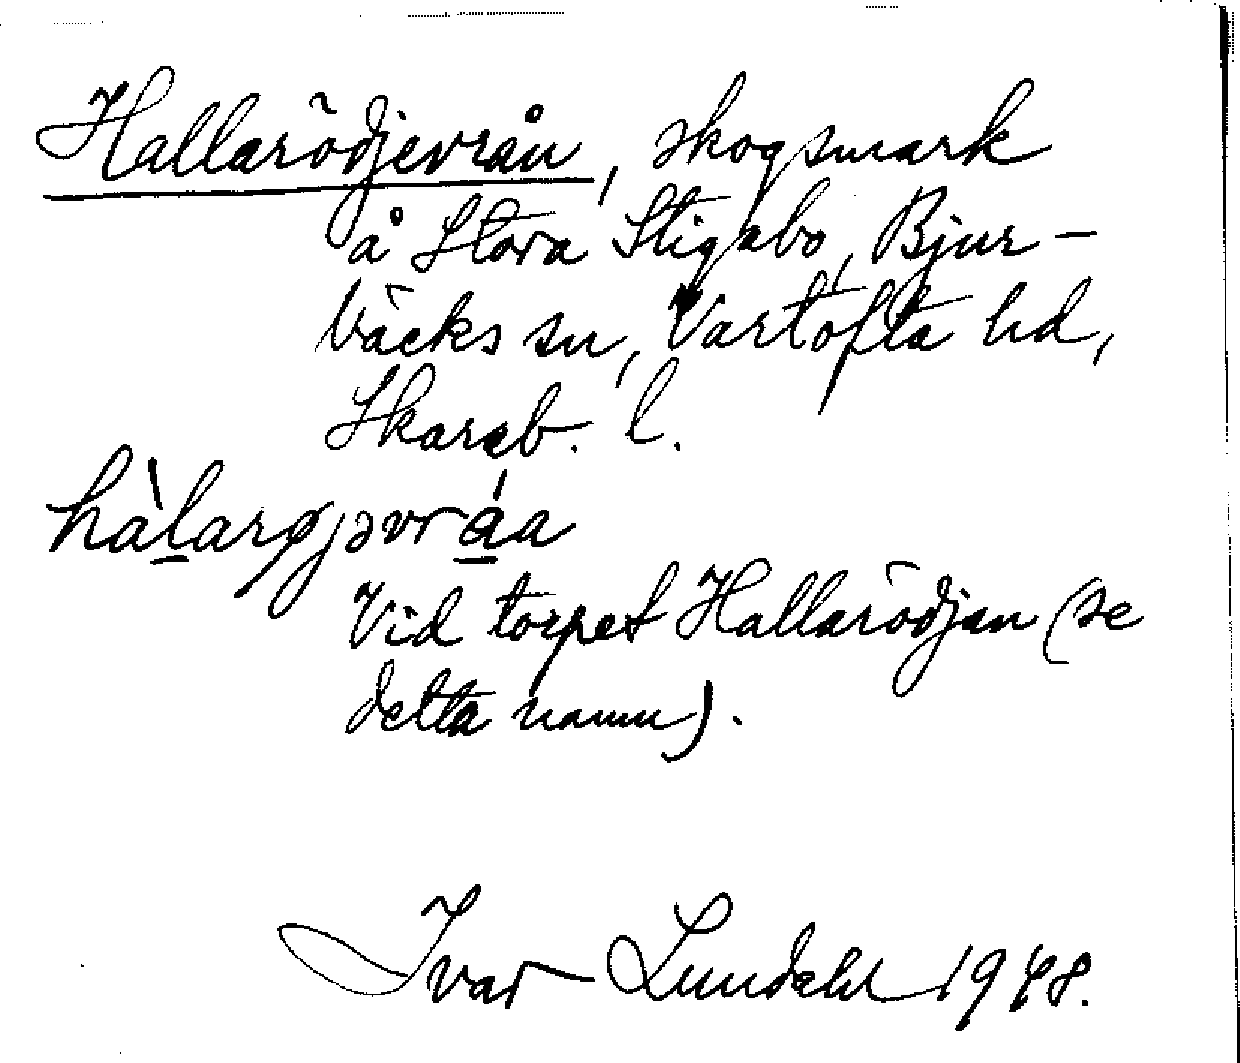 Hallarödjevrån, skogsmark
å Stora Stigabo, Bjur-
bäcks sn, Vartofta hd,
Skarab. l.
hàlarøjəvráa
Vid torpet Hallarödjan (se
detta namn).
Ivar Lundahl 1948.